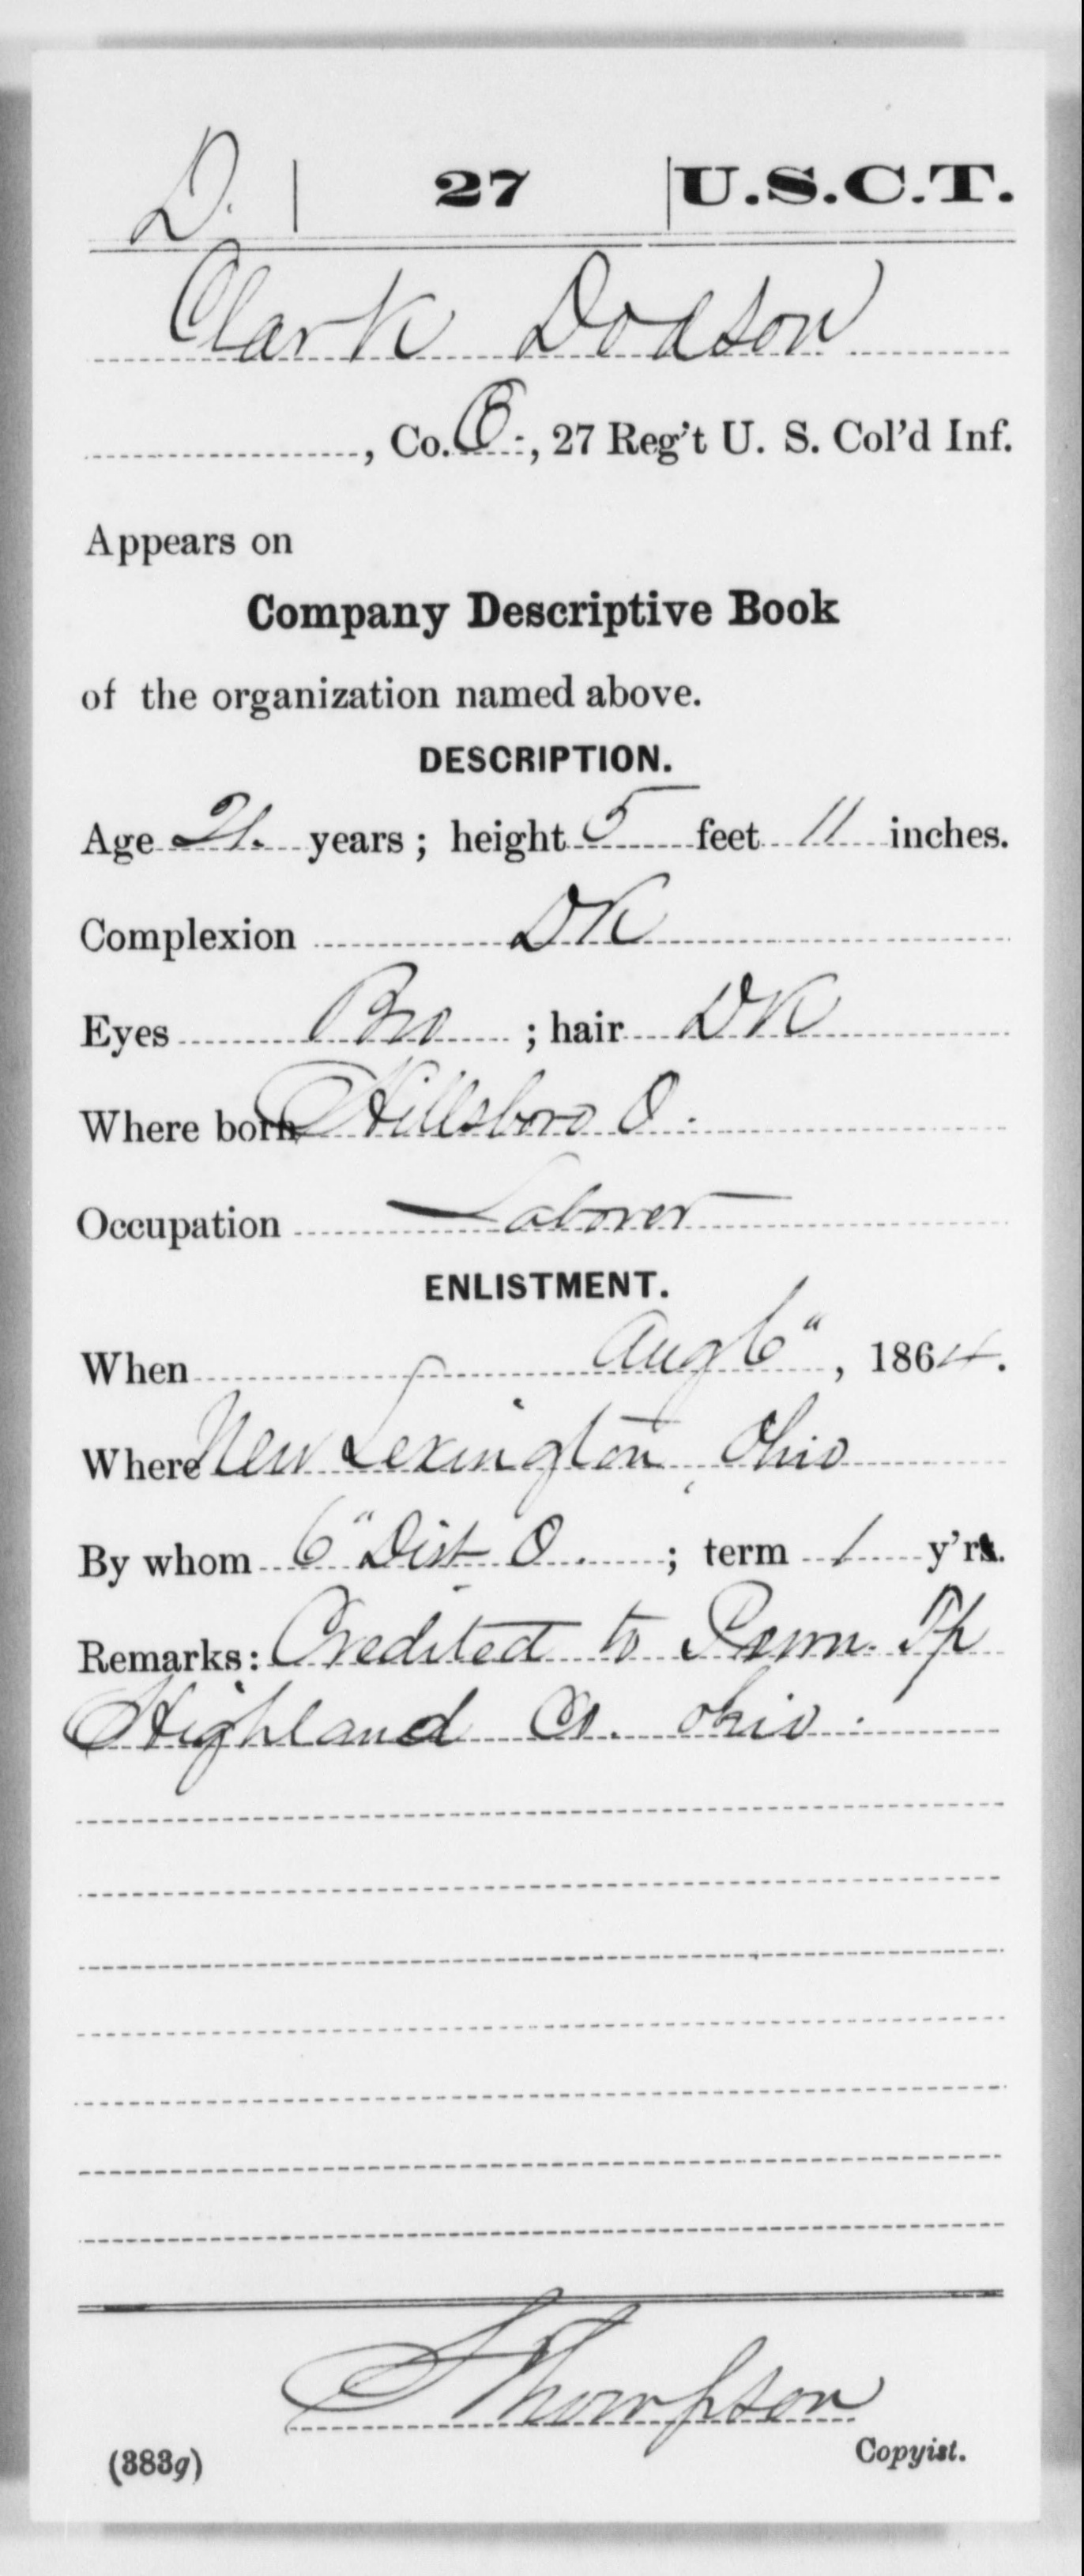 D. | 27 | U.S.C.T.
Clark Dodson
, Co. B., 27 Reg't U. S. Col'd Inf.
Appears on
Company Descriptive Book
of the organization named above.
DESCRIPTION.
Age 21. years; height 5 feet 11 inches.
Complexion DK
Eyes Bro ; hair DK
Where born Hillsboro O.
Occupation Laborer
ENLISTMENT.
When Aug 6", 1864.
Where New Lexington, Ohio
By whom 6" Dist O. ; term 1 y'r.
Remarks: Credited to Penn. Tp
Highland Co. Ohio.
Thompson
Copyist.
(383g)